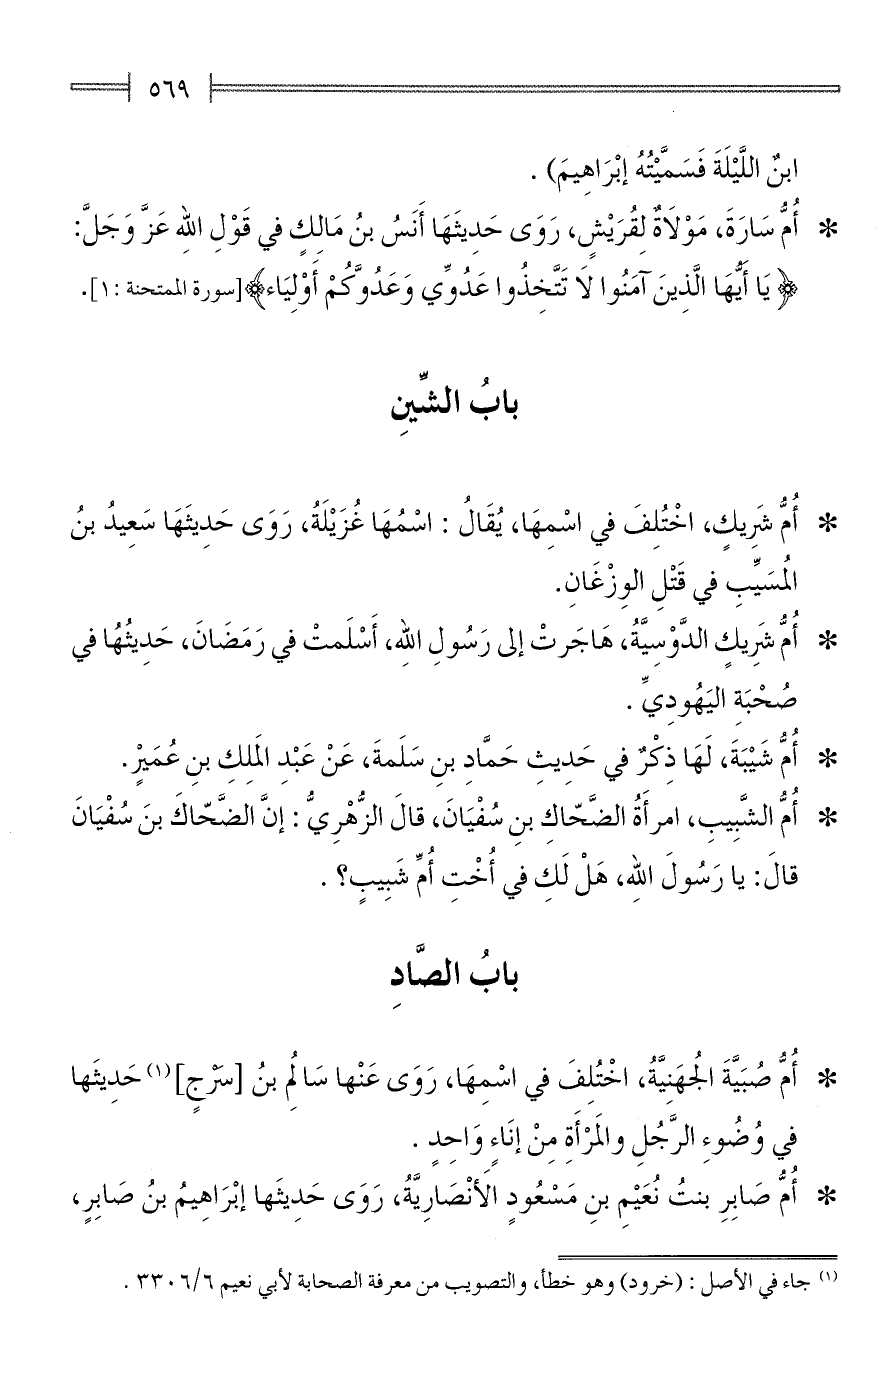 ٥٦٩
ابنٌ اللَّيْلَةَ فَسَمَّيْتُهُ إبْرَاهِيمَ) .
* أُمُّ سَارَةَ، مَوْلَاةٌ لِقُرَيْشٍ، رَوَى حَدِيثَهَا أَنَسُ بنُ مَالِكٍ في قَوْلِ الله عَزَّ وَجَلَّ:
﴿يَا أَيُّهَا الَّذِينَ آمَنُوا لَا تَتَّخِذُوا عَدُوِّي وَعَدُوَّكُمْ أَوْلِيَاء﴾[سورة الممتحنة :١].
بابُ الشِّينِ
* أُمُّ شَرِيكٍ، اخْتُلِفَ في اسْمِهَا، يُقَالُ : اسْمُهَا غُزَيْلَةُ، رَوَى حَدِيثَهَا سَعِيدُ بنُ
المُسَيِّبِ في قَتْلِ الوِزْغَانِ.
* أُمُّ شَرِيكٍ الدَّوْسِيَّةُ، هَاجَرتْ إلى رَسُولِ الله، أَسْلَمتْ في رَمَضَانَ، حَدِيثُهُا في
صُحْبَةِ اليَهُودِيِّ .
* أُمُّ شَيْبَةَ، لَهَا ذِكْرٌ في حَدِيثِ حَمَّادِ بنِ سَلَمةَ، عَنْ عَبْدِ المَلِكِ بنِ عُمَيْرٍ.
* أُمُّ الشَّبِيبِ، امرأَةُ الضَّحّاكِ بنِ سُفْيَانَ، قالَ الزُّهْرِيُّ : إنَّ الضَّحّاكَ بنَ سُفْيَانَ
قالَ: يا رَسُولَ الله، هَلْ لَكِ في أُخْتِ أُمِّ شَبِيبٍ؟ .
بابُ الصَّادِ
* أُمُّ صُبَيَّةَ الجُهَنِيَّةُ، اخْتُلِفَ في اسْمِهَا، رَوَى عَنْها سَالُم بنُ [سَرْجٍ](١) حَدِيثَها
في وُضُوءِ الرَّجُلِ والمَرْأَةِ مِنْ إنَاءٍ وَاحِدٍ .
* أُمُّ صَابِرِ بنتُ نُعَيْمِ بنِ مَسْعُودٍ الأَنْصَارِيَّةُ، رَوَى حَدِيثَها إبْرَاهِيمُ بنُ صَابِرٍ،
(١) جاء في الأصل : (خرود) وهو خطأ، والتصويب من معرفة الصحابة لأبي نعيم ٣٣٠٦/٦ .